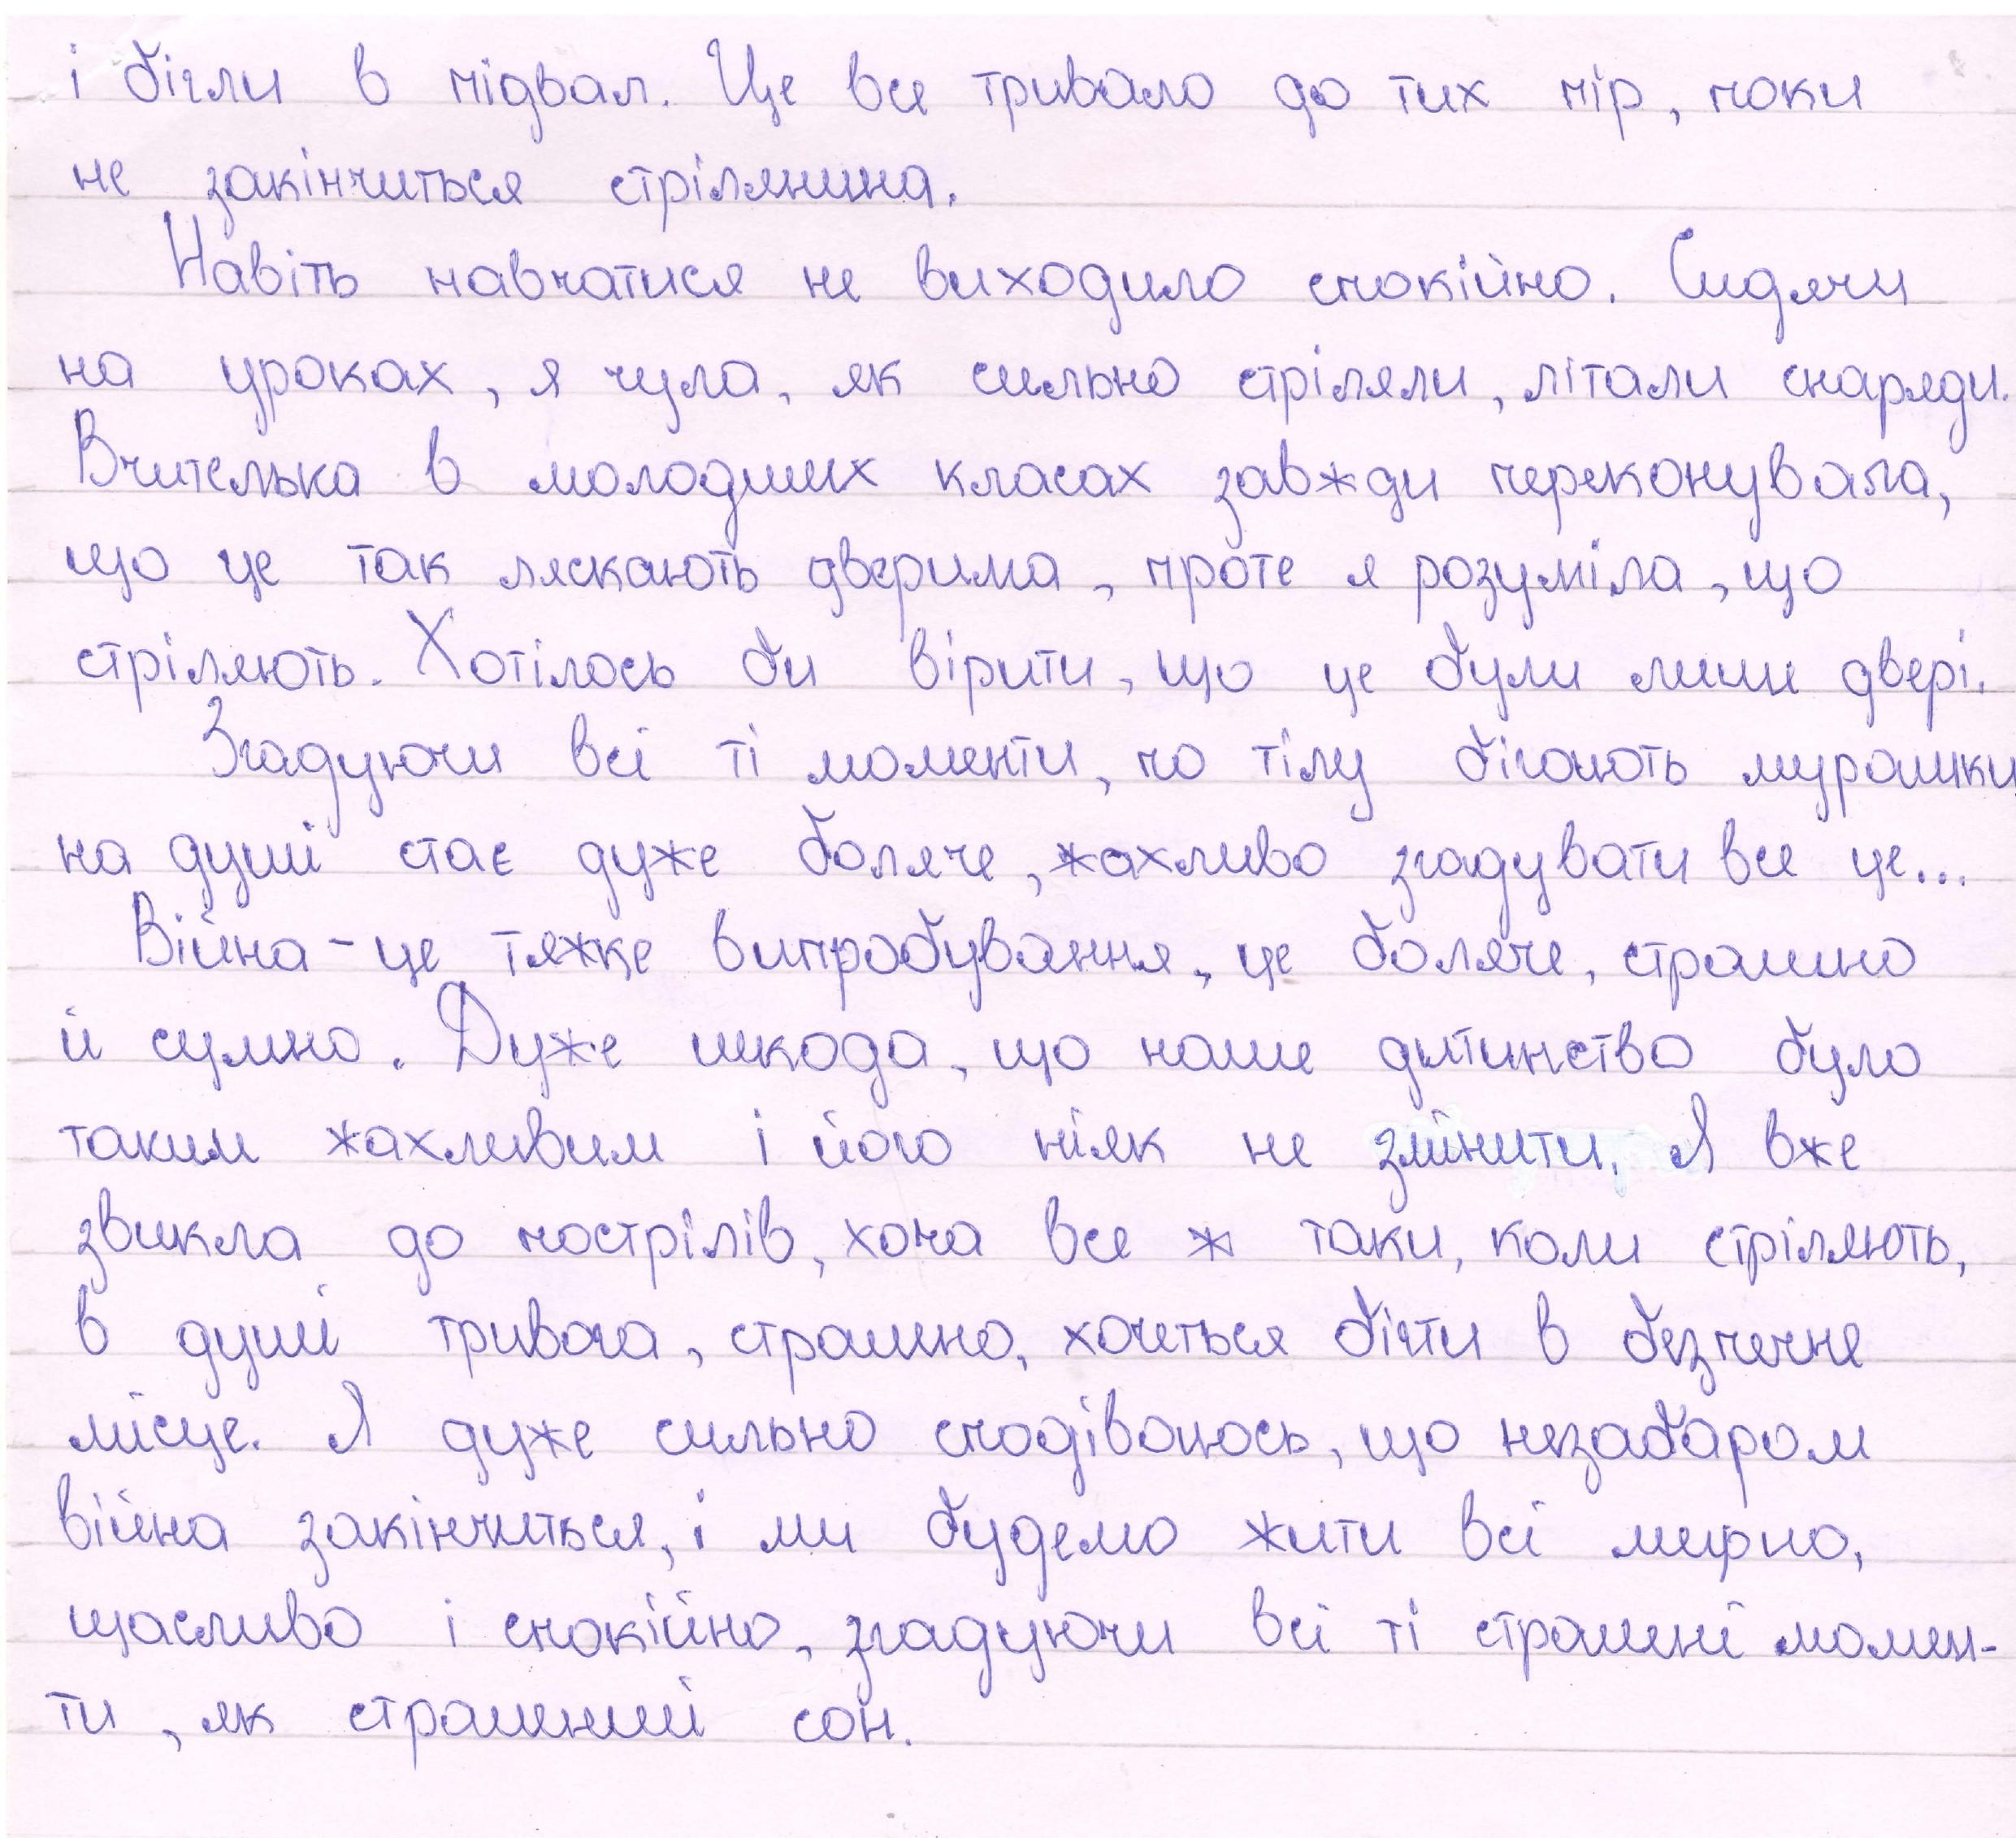 і бігли в підвал. Це все тривало до тих пір, поки
не закінчиться стрілянина.
Навіть навчатися не виходило спокійно. Сидячи
на уроках, я чула, як сильно стріляли, літали снаряди.
Вчителька в молодших класах завжди переконувала,
що це так ляскають дверима, проте я розуміла, що
стріляють. Хотілось би вірити, що це були лише двері.
Згадуючи всі ті моменти, по тілу бігають мурашки,
на душі стає дуже боляче, жахливо згадувати все це...
Війна - це тяжке випробування, це боляче, страшно
й сумно. Дуже шкода, що наше дитинство було
таким жахливим і його ніяк не змінити. Я вже
звикла до пострілів, хоча все ж таки, коли стріляють,
в душі тривога, страшно, хочеться бігти в безпечне
місце. Я дуже сильно сподіваюсь, що незабаром
війна закінчиться, і ми будемо жити всі мирно,
щасливо і спокійно, згадуючи всі ті страшні момен-
ти, як страшний сон.